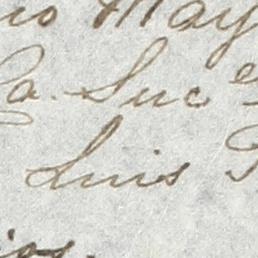 io May
Ca. Suc e
Luis
ios.